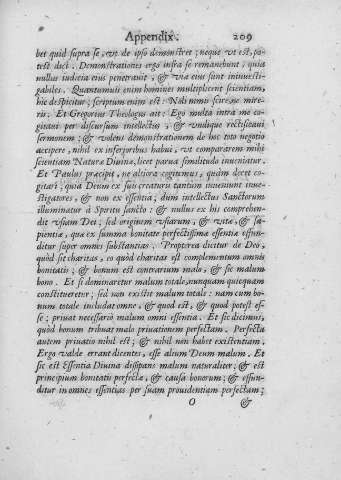 Appendix. 209
bet quid supra se, vt de ipso demonstret; neque vt est, po-
test dici. Demonstrationes ergo infra se remanebunt, quia
nullus iudicia eius penetrauit, & via eius sunt inuuesti-
gabiles. Quantumuis enim homines multiplicent scientiam,
hic despicitur; scriptum enim est: Noli nimis scire, ne mire-
ris. Et Gregorius Theologus ait: Ego multa intra me co-
gitaui per discursum intellectus, & vndique rectificaui
sermonem; & volens demonstrationem de hoc toto negotio
accipere, nihil ex inferioribus habui, vt compararem mihi
scientiam Naturæ Diuinæ, licet parua similitudo inueniatur.
Et Paulus præcipit, ne altiora cogitemus, quàm decet co-
gitari; quia Deum ex suis creaturis tantum inueniunt inue-
stigatores, & non ex essentia; dum intellectus Sanctorum
illuminatur à Spiritu sancto: & nullus ex his comprehen-
dit vsiam Dei; sed originem vsiarum, & vitæ, & sa-
pientiæ, quæ ex summa bonitate perfectissimæ essentiæ effun-
ditur super omnes substantias. Propterea dicitur de Deo,
quòd sit charitas, eo quòd charitas est complementum omnis
bonitatis; & bonum est contrarium malo, & sic malum
bono. Et si dominaretur malum totale, nunquam quicquam
constitueretur; sed non existit malum totale: nam cum bo-
num totale includat omne, & quod est, & quod potest es-
se; priuat necessariò malum omni essentia. Et sic dicimus,
quòd bonum tribuat malo priuationem perfectam. Perfecta
autem priuatio nihil est; & nihil non habet existentiam.
Ergo valde errant dicentes, esse alium Deum malum. Et
sic est Essentia Diuina dissipans malum naturaliter; & est
principium bonitatis perfectæ, & causa bonorum; & effun-
ditur in omnes essentias per suam prouidentiam perfectam;
O &